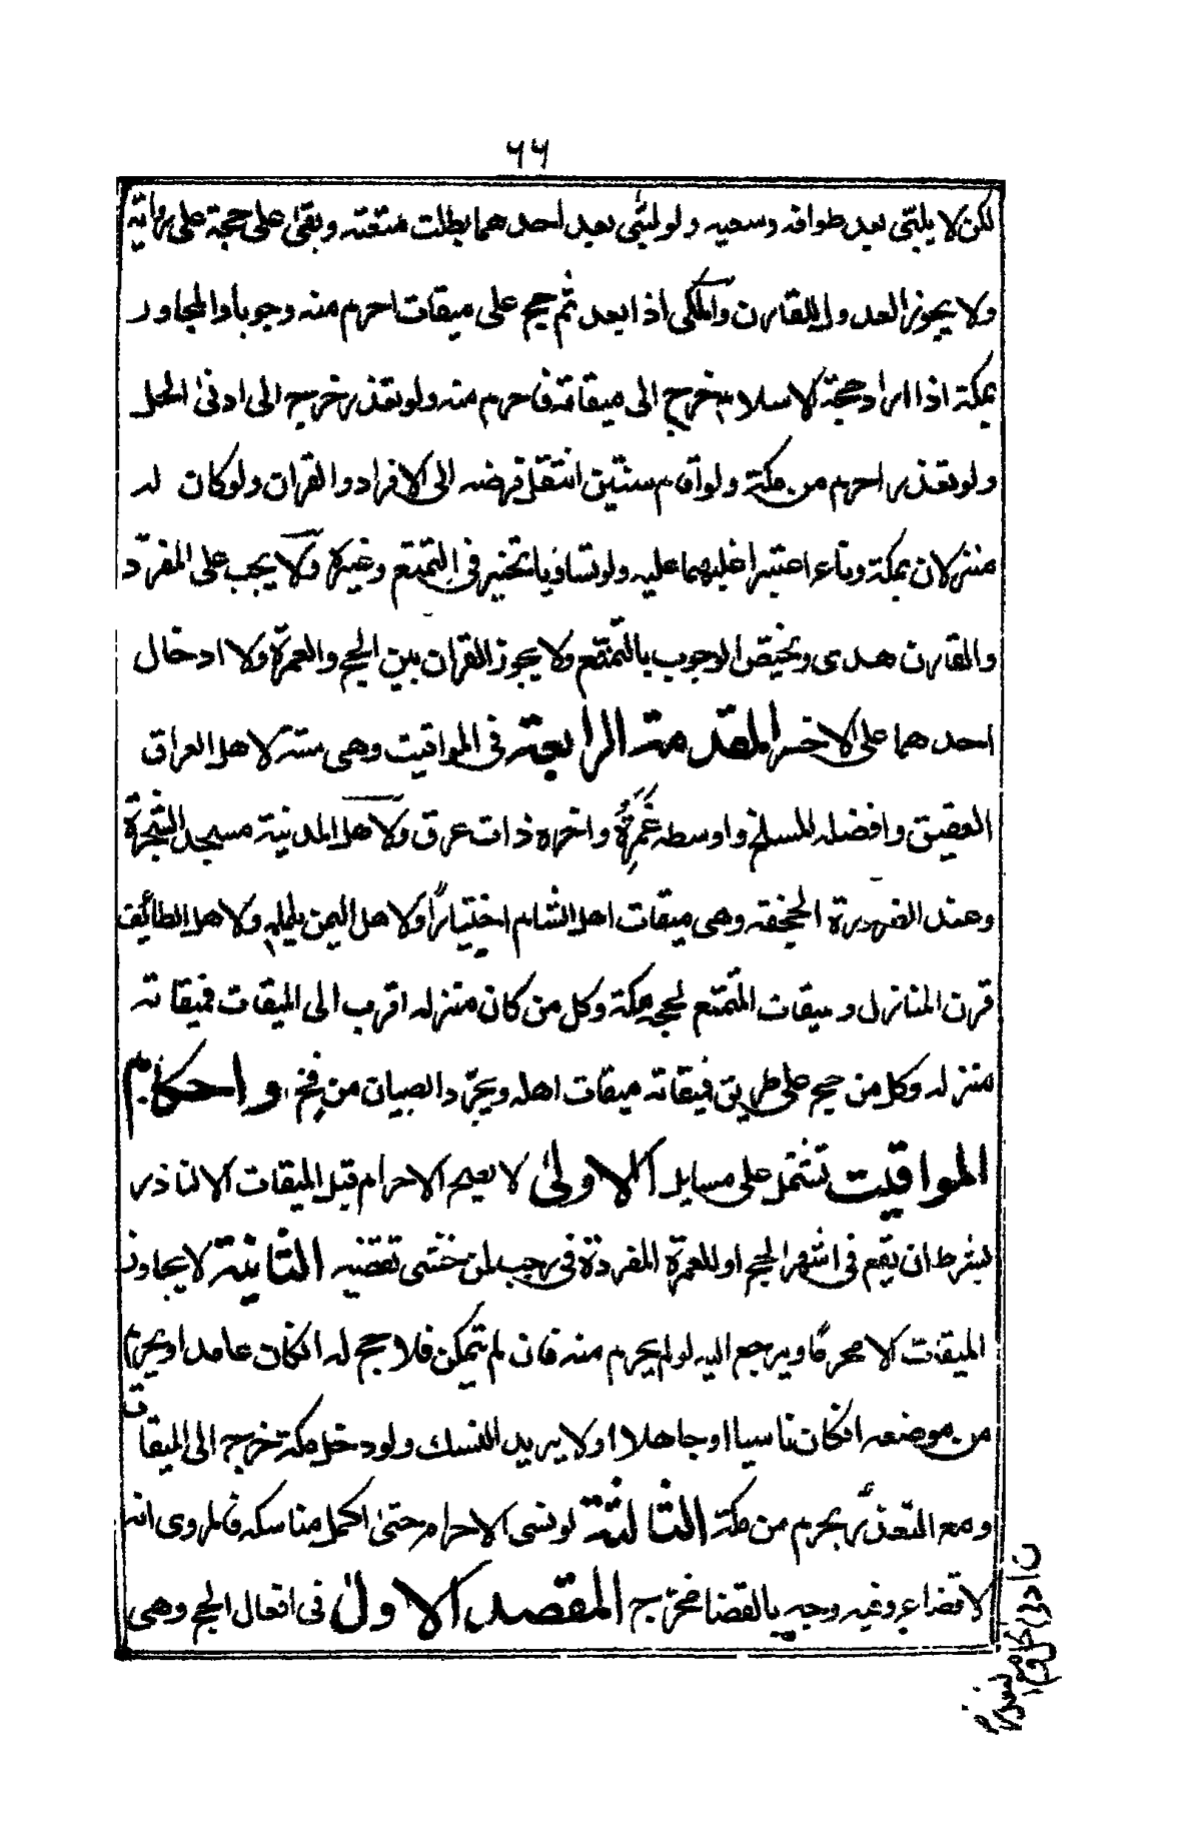 ٦٦
لكن لا يلبّى بعد طوافه وسعيه ولو لبّى بعد احدهما بطلت متعته وبقى على حجة على رواية
ولا يجوز العدول للقارن والمكى اذا بعد ثم حج على ميقات احرم منه وجوبا والمجاور
بمكة اذا اراد حجة الاسلام خرج الى ميقاته فاحرم منه ولو تعذر خرج الى ادنى الحل
ولو تعذر احرم من مكة ولو اقام سنتين انتقل فرضه الى الافراد والقران ولو كان له
منزلان بمكة وناء اعتبر اغلبهما عليه ولو تساويا تخير فى التمتع وغيره ولا يجب على المفرد
والقارن هدى ويختص الوجوب بالتمتع ولا يجوز القران بين الحج والعمرة ولا ادخال
احدهما على الاخر المقدمة الرابعة فى المواقيت وهى ستة لاهل العراق
العقيق وافضله المسلخ واوسطه غمرة واخره ذات عرق ولاهل المدينة مسجد الشجرة
وعند الضرورة الجحفة وهى ميقات اهل الشام اختيارًا ولاهل اليمن يلملم ولاهل الطائف
قرن المنازل وميقات المتمتع لحجه مكة وكل من كان منزله اقرب الى الميقات فميقاته
منزله وكل من حج على طريق فميقاته ميقات اهله ويجرّد الصبيان من فخ واحكام
المواقيت تشتمل على مسايل الاولى لا يصح الاحرام قبل الميقات الا لناذر
بشرط ان يقع فى اشهر الحج او للعمرة المفردة فى رجب لمن خشى تقضيه الثانية لا يجاوز
الميقات الا محرمًا ويرجع اليه لو لم يحرم منه فان لم يتمكن فلا حج له ان كان عامدا ويحرم
من موضعه ان كان ناسيا او جاهلا او لا يريد النسك ولو دخل مكة خرج الى الميقات
ومع التعذر يحرم من مكة الثالثة لو نسى الاحرام حتى اكمل مناسكه فالمروى انه
لا قضاء وفيه وجه بالقضا مخرج المقصد الاول فى افعال الحج وهى